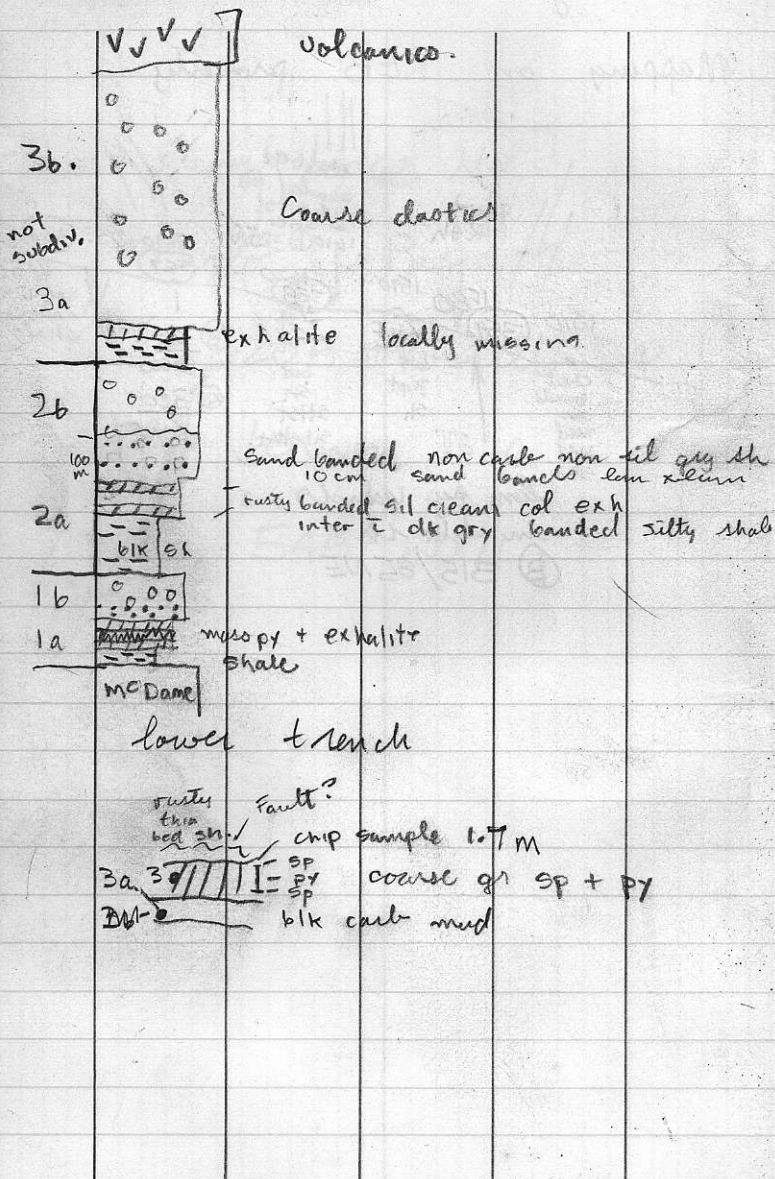 volcanics.
3b.
Coarse clastics
not
subdiv.
3a
exhalite locally missing
2b
100
m
Sand banded non carb non sil gry sh
10 cm sand bands
rusty banded sil clean col exh
2a
inter c̄ dk gry banded silty shale
blk sh
1b
1a
maso py + exhalite
shale
McDame
lower trench
rusty
thin
bed sh.
Fault?
chip sample 1.7 m
sp
3a 3 py coarse gr sp + py
sp
blk carb mud